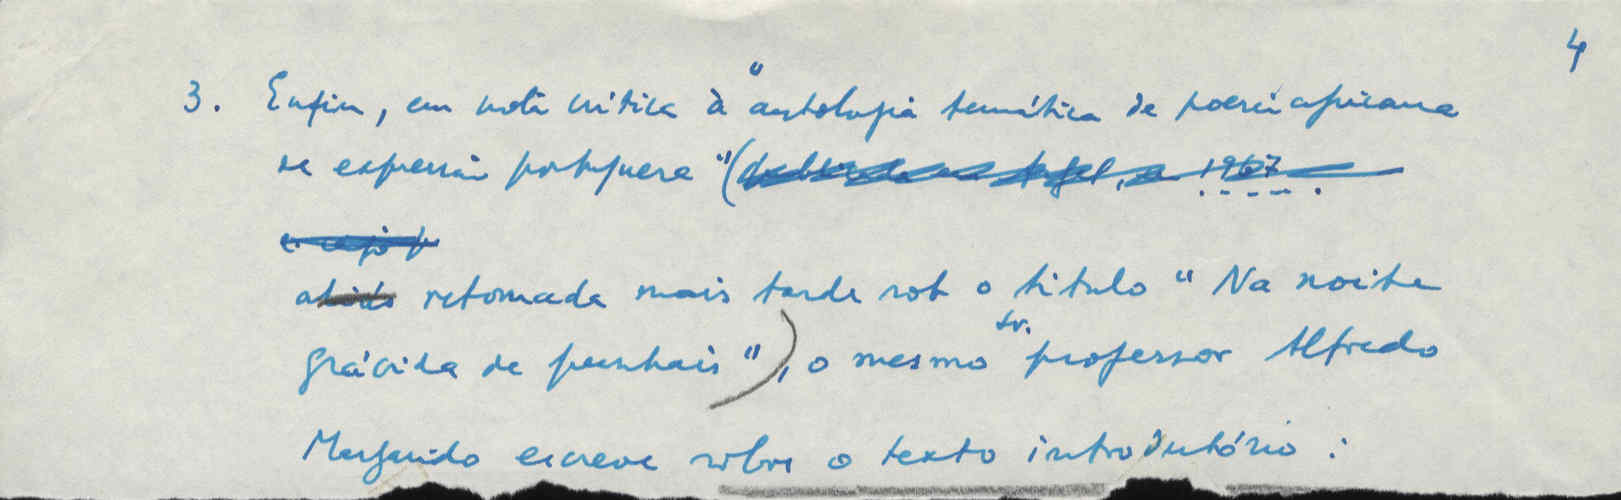 4
3. Enfim, em nota crítica à "antologia temática de poesia africana
de expressão portuguesa" ( 1967
retomada mais tarde sob o título "Na noite
grávida de punhais"), o mesmo sr. professor Alfredo
Margarido escreve sobre o texto introdutório: